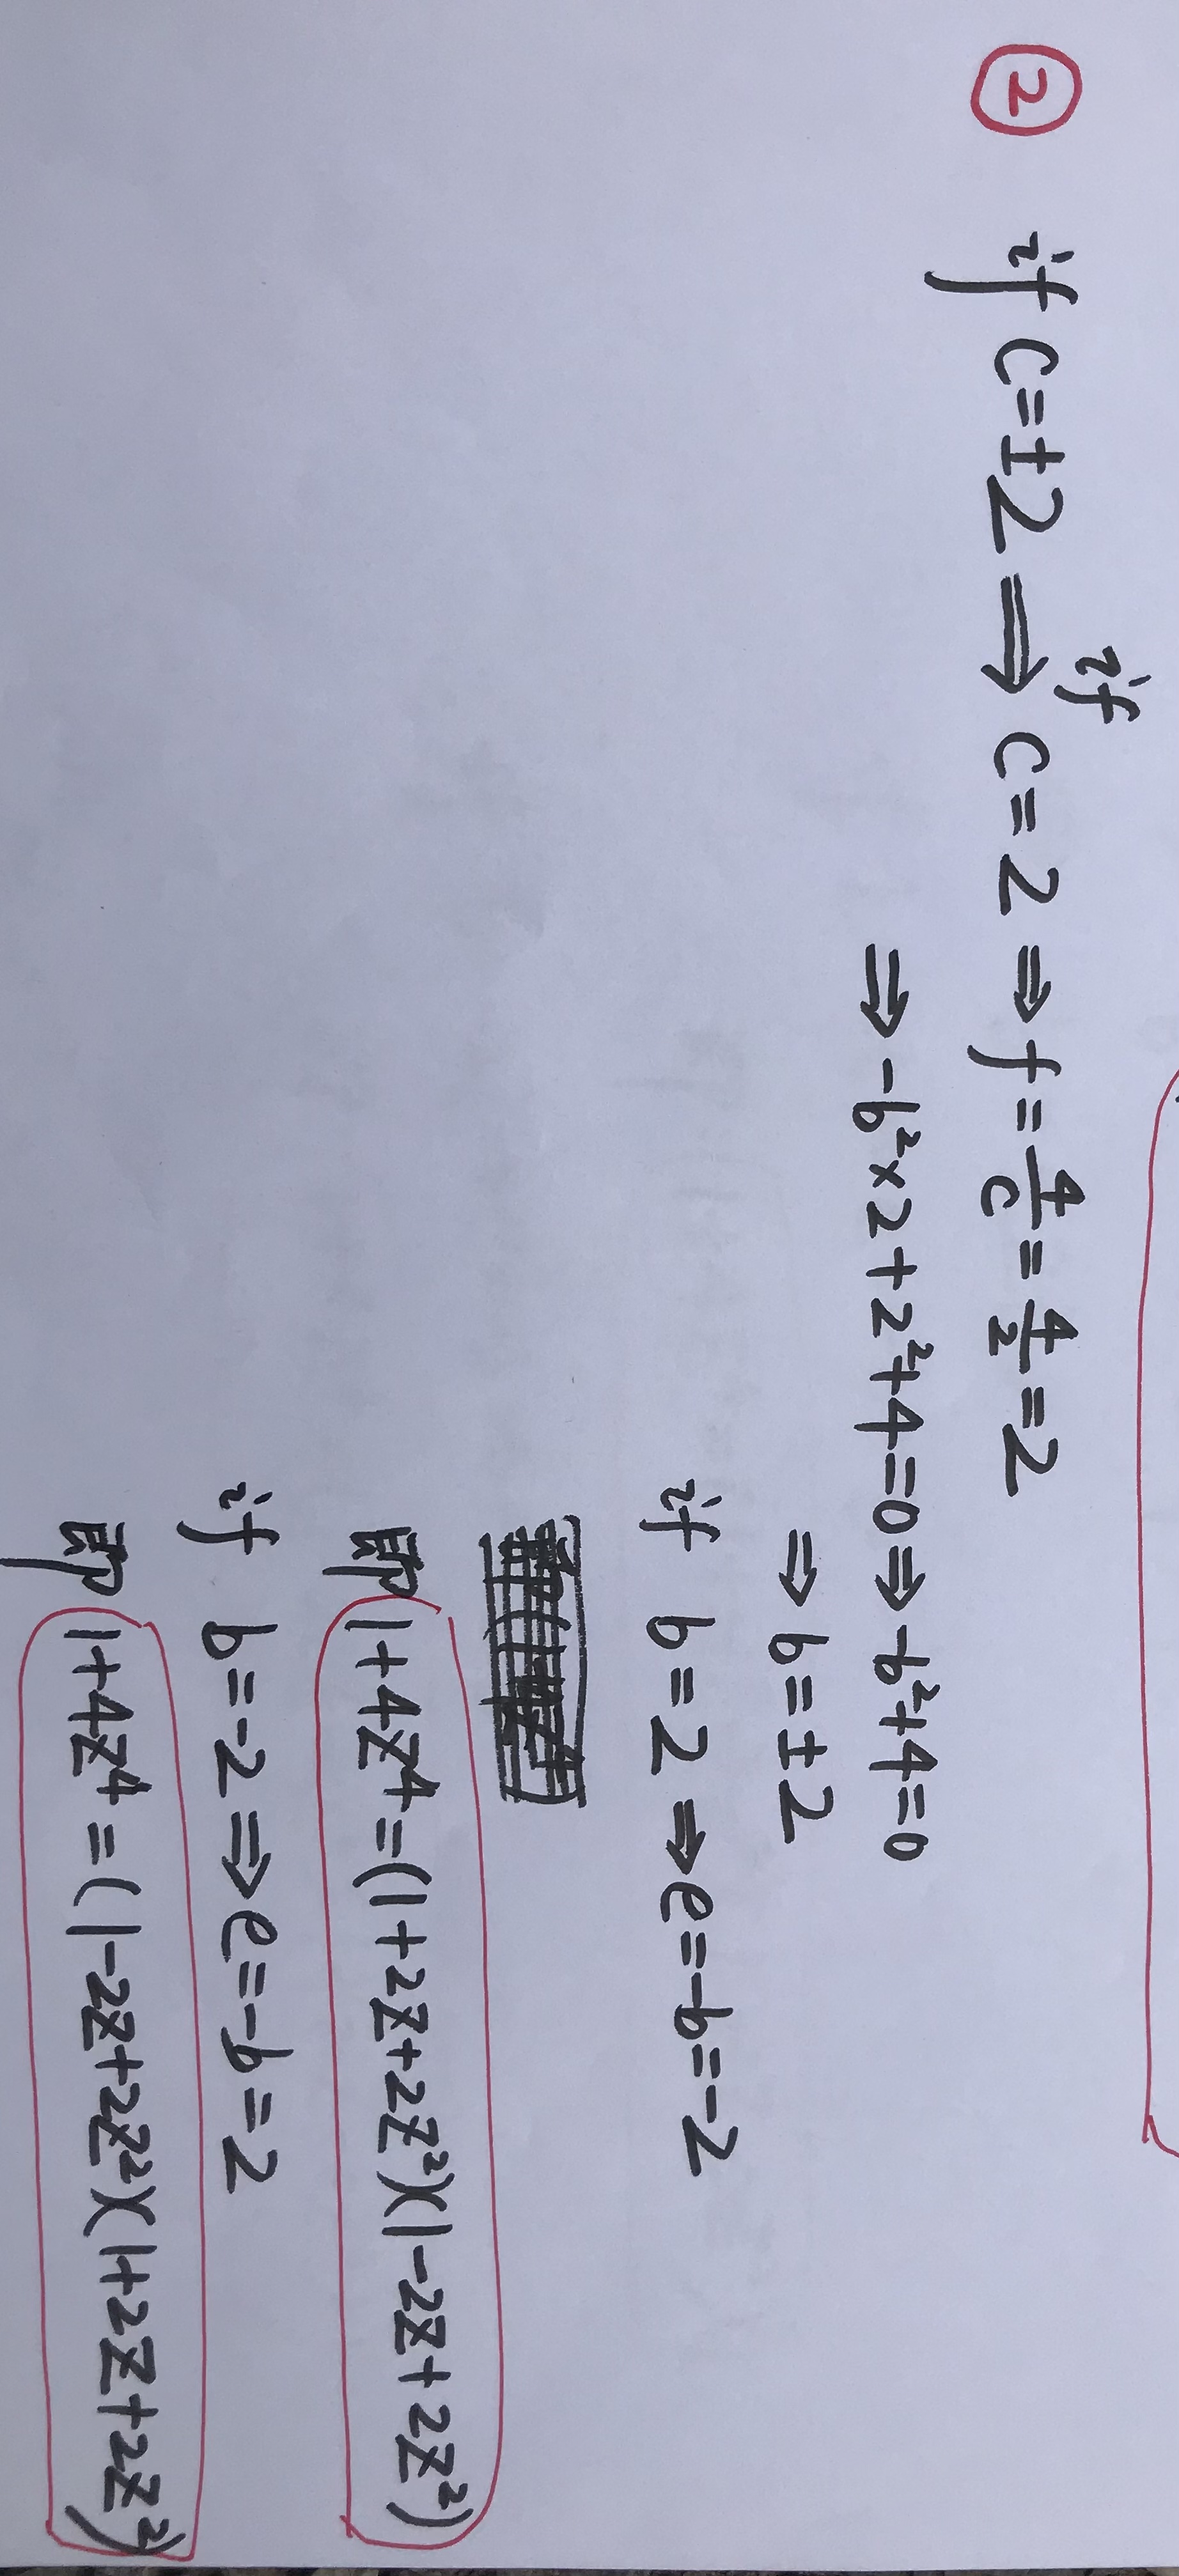 ② if c=±2 ⟹ if c=2 ⇒ f=4/c=4/2=2
⇒ -b²×2+2²+4=0 ⇒ -b²+4=0
⇒ b=±2
if b=2 ⇒ e=-b=-2
即 1+4Z⁴=(1+2Z+2Z²)(1-2Z+2Z²)
if b=-2 ⇒ e=-b=2
即 1+4Z⁴=(1-2Z+2Z²)(1+2Z+2Z²)